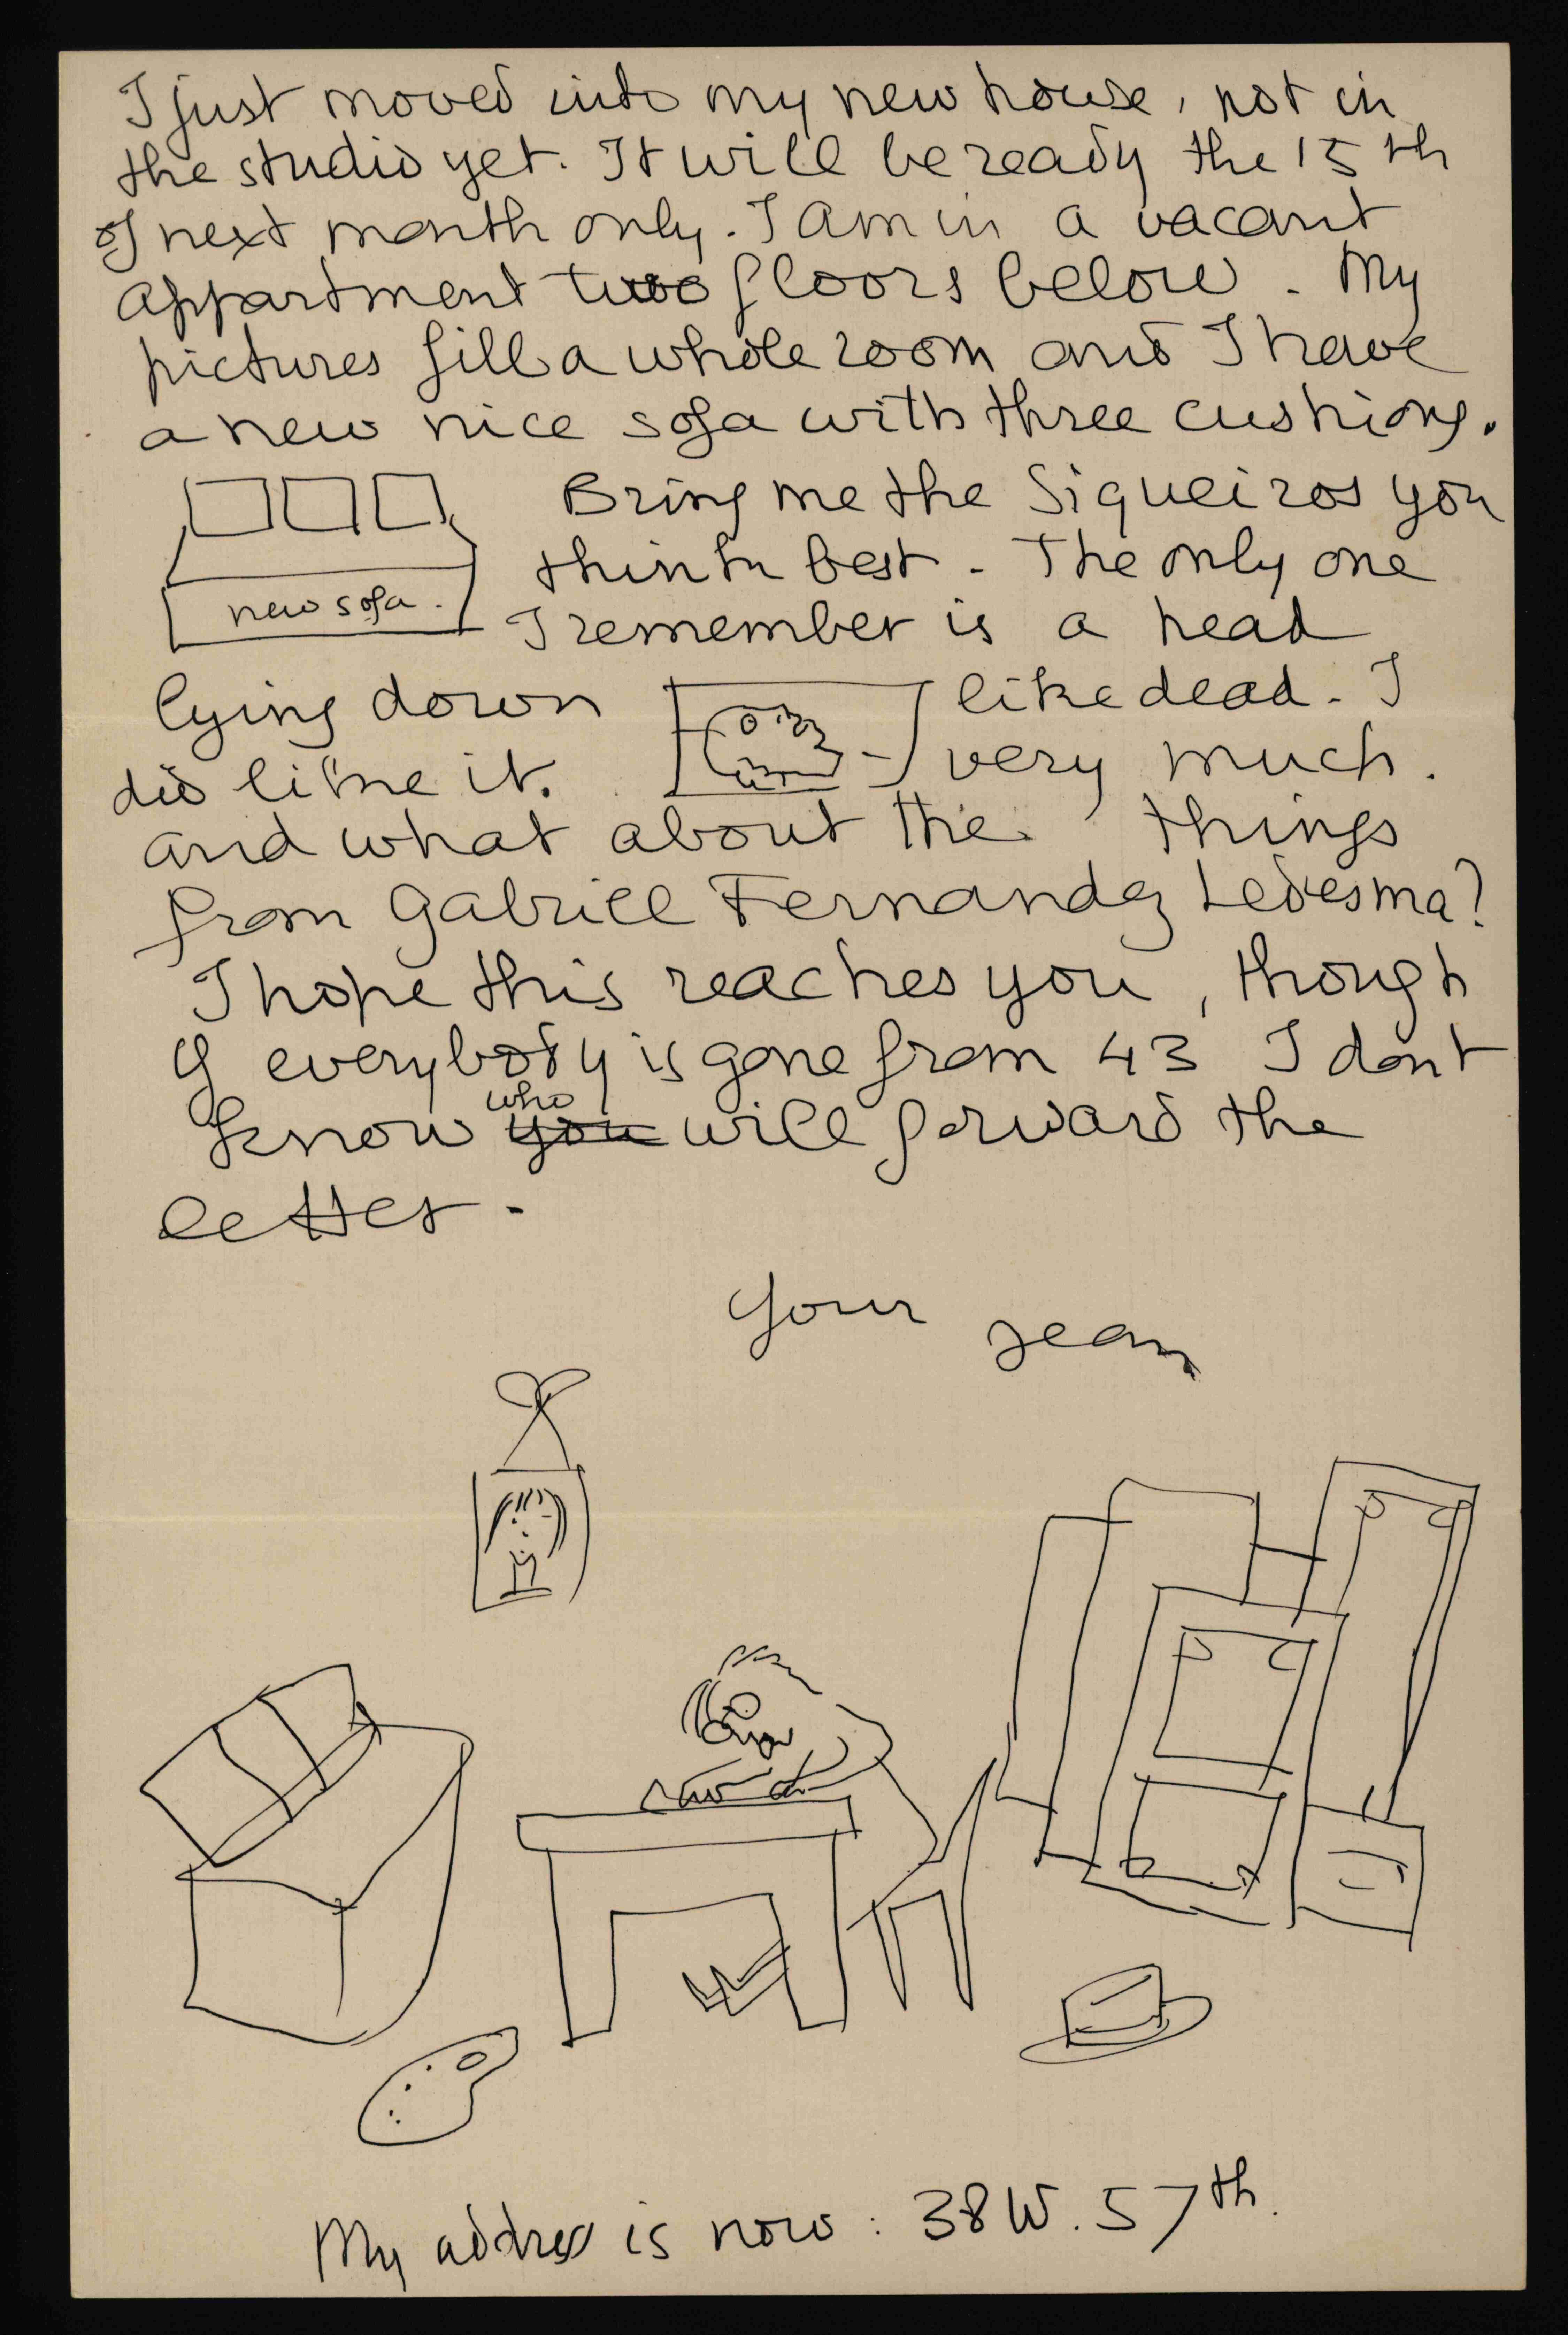 I just moved into my new house, not in
the studio yet. It will be ready the 15th
of next month only. I am in a vacant
appartment two floors below. My
pictures fill a whole room and I have
a new nice sofa with three cushions.
new sofa.
Bring me the Siqueiros you
think best. The only one
I remember is a head
lying down like dead. I
did like it very much.
and what about the things
from Gabriel Fernandez Ledesma?
I hope this reaches you, though
if everybody is gone from 43 I dont
know you who will forward the
letter.
Your Jean
My address is now: 38 W. 57th.